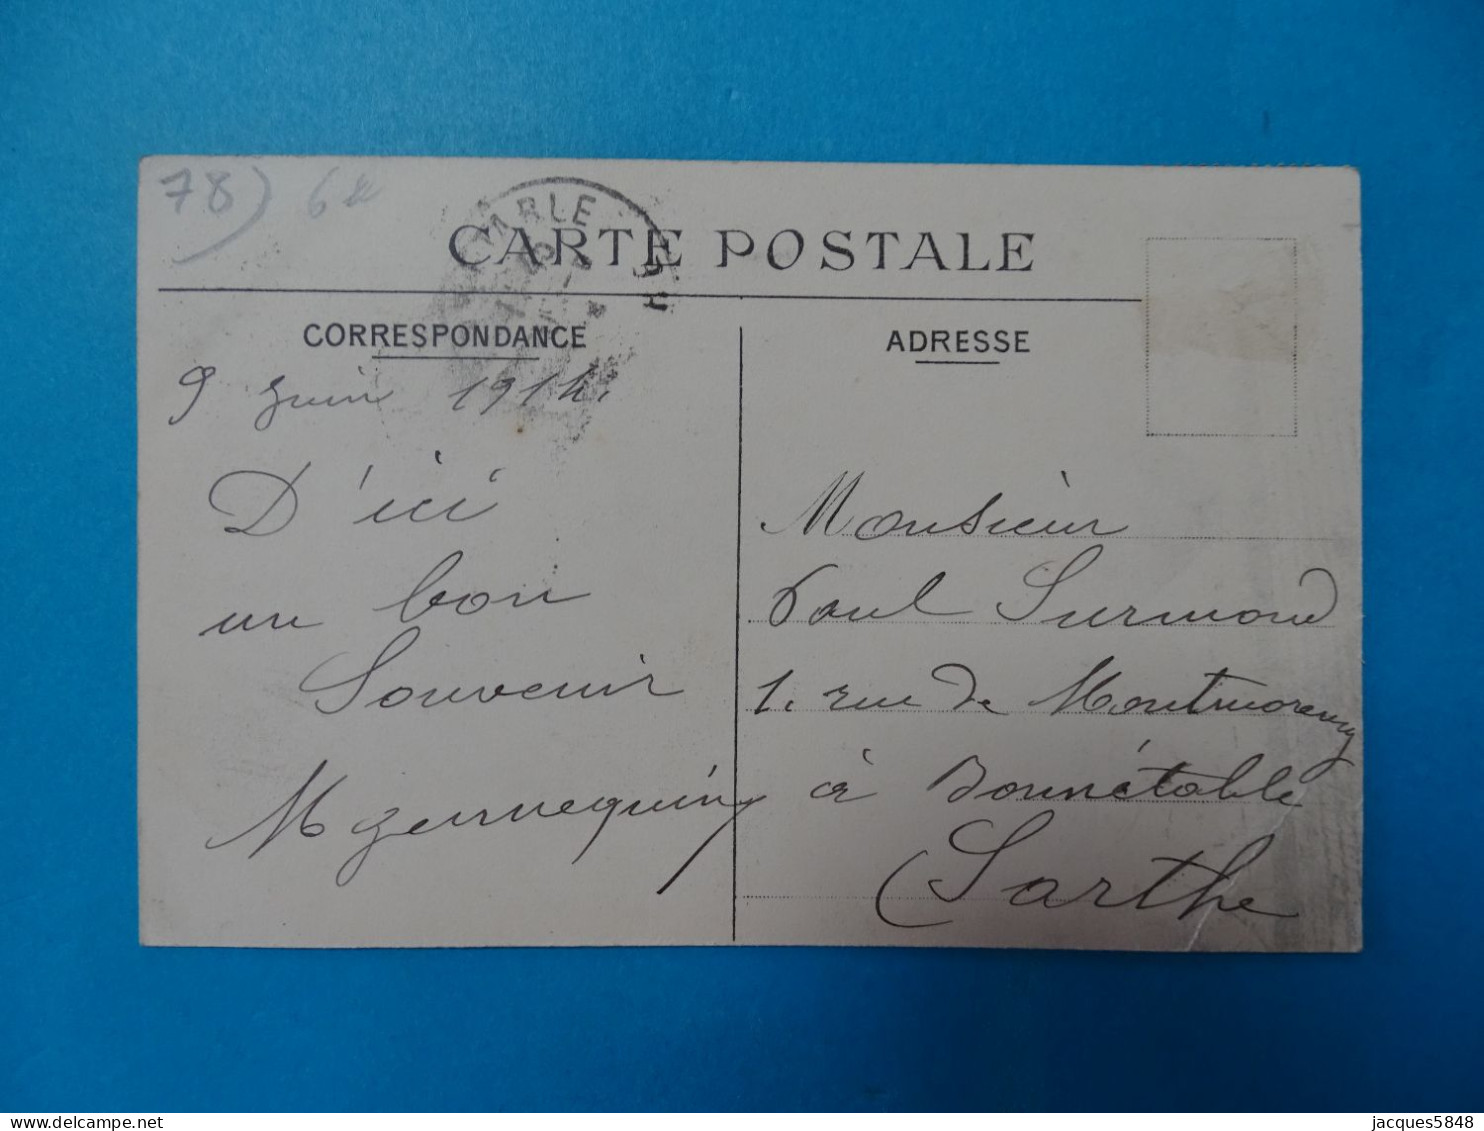 78) 6
CARTE POSTALE
CORRESPONDANCE
9 Juin 1914.
D'ici
un bon
Souvenir
ADRESSE
Monsieur
Paul Surmond
1. rue de Montmorency
à Bonnétable
(Sarthe
jacques5848